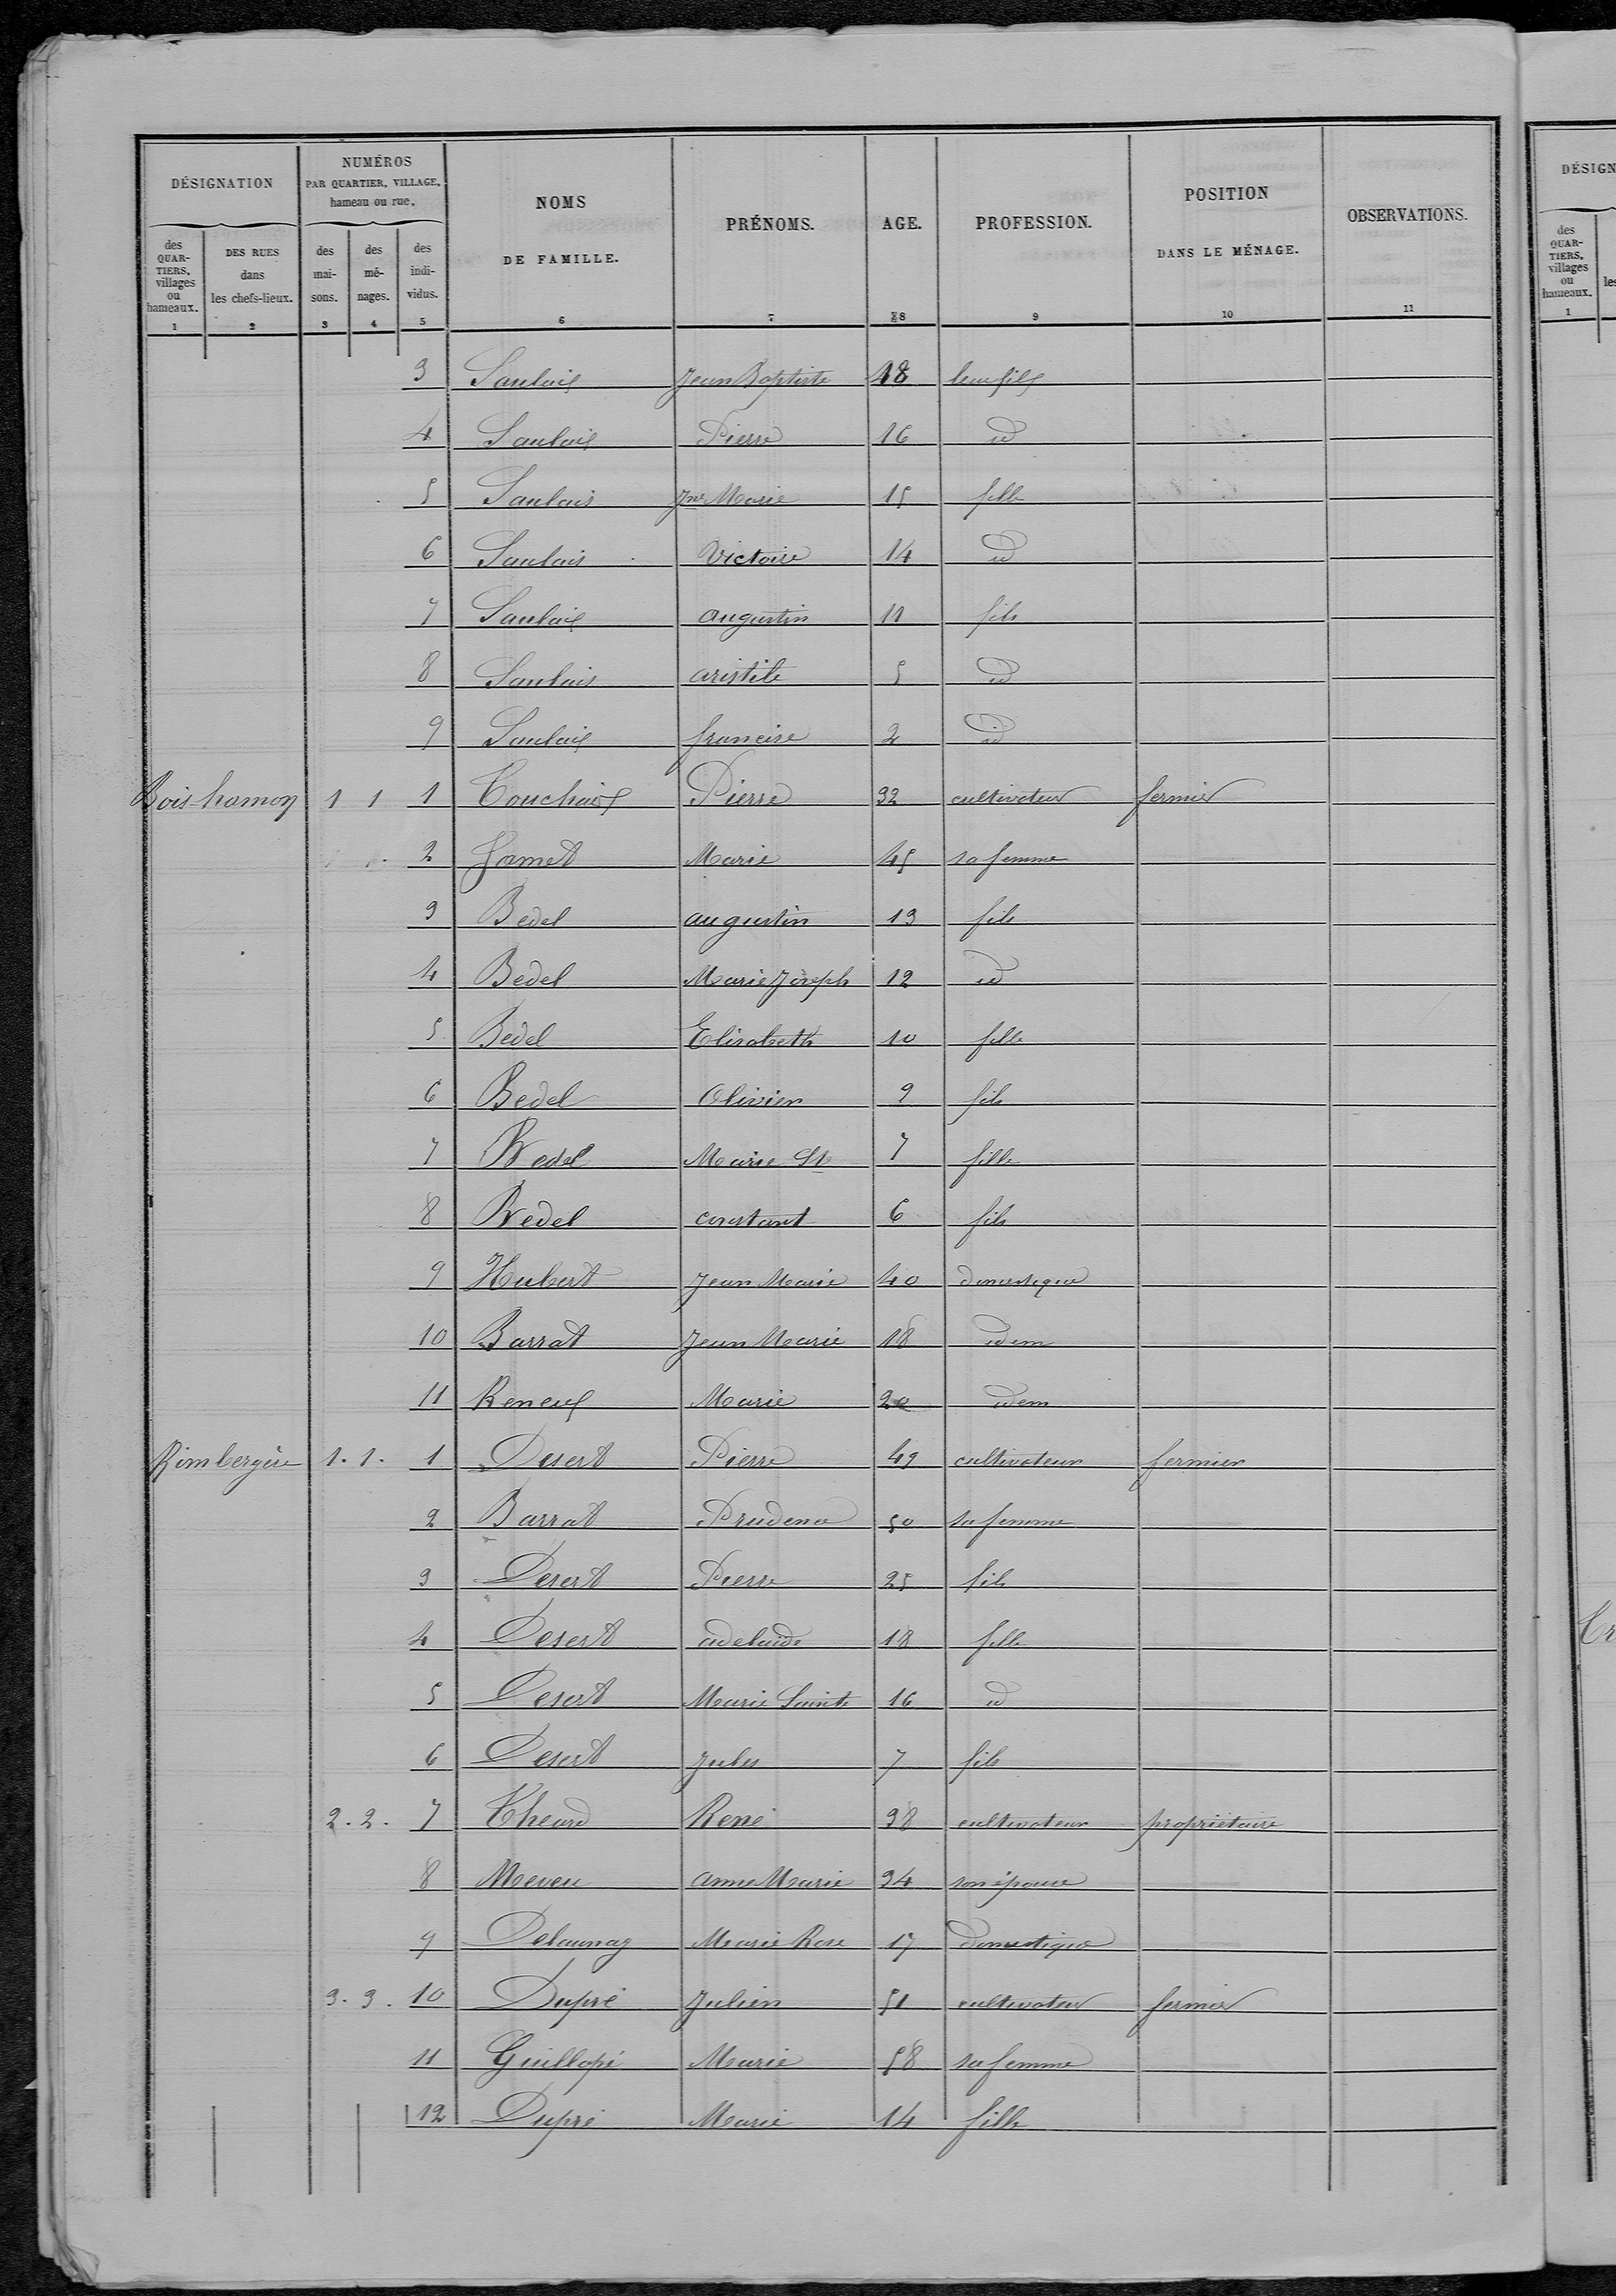 DÉSIGNATION
NUMÉROS
PAR QUARTIER, VILLAGE,
hameau ou rue,
des QUAR-TIERS, villages ou hameaux.
DES RUES dans les chefs-lieux.
des mai-sons.
des mé-nages.
des indi-vidus.
NOMS DE FAMILLE.
PRÉNOMS.
AGE.
PROFESSION.
POSITION DANS LE MÉNAGE.
OBSERVATIONS.
1 2 3 4 5 6 7 8 9 10 11
3 Saulais Jean Baptiste 18 leur fils
4 Saulais Pierre 16 id
5 Saulais Jne Marie 15 fille
6 Saulais Victoire 14 id
7 Saulais augustin 11 fils
8 Saulais aristile 5 id
9 Saulais francise 2 id
Bois-hamon 1 1 1 Touchais Pierre 32 cultivateur fermier
2 Jamet Marie 45 sa femme
3 Bedel augustin 13 fils
4 Bedel Marie Joseph 12 id
5 Bedel Elisabeth 10 fille
6 Bedel Olivier 9 fils
7 Bedel Marie Ste 7 fille
8 Bedel constant 6 fils
9 Hubert Jean Marie 40 domestique
10 Barrat Jean Marie 18 idem
11 Reneul Marie 20 idem
Rimbergère 1. 1. 1 Desert Pierre 49 cultivateur fermier
2 Barrat Prudence 50 sa femme
3 Desert Pierre 25 fils
4 Desert adelaide 18 fille
5 Desert Marie Sainte 16 id
6 Desert Jules 7 fils
2. 2. 7 Theard René 38 cultivateur propriétaire
8 Meveu anne Marie 34 son épouse
9 Delaunay Marie Rose 17 domestique
3. 3. 10 Dupré Julien 51 cultivateur fermier
11 Guillopé Marie 58 sa femme
12 Dupré Marie 14 fille
DÉSIGN
des QUAR-TIERS, villages ou hameaux.
les
1
Tr